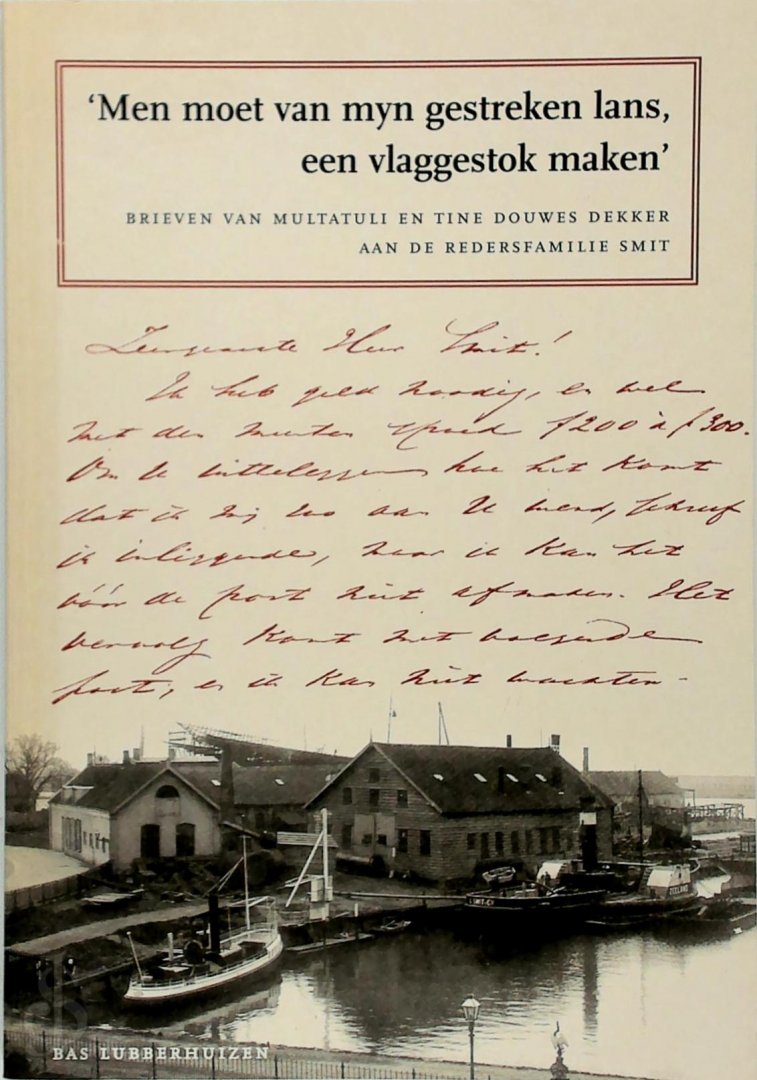 ‘Men moet van myn gestreken lans,
een vlaggestok maken’
BRIEVEN VAN MULTATULI EN TINE DOUWES DEKKER
AAN DE REDERSFAMILIE SMIT
Zeergeachte Heer Smit!
Ik heb geld noodig, en wel
met den meesten spoed ƒ200 à ƒ300.
Om U uitteleggen hoe het komt
dat ik mij tot U wend, schreef
ik inliggende, maar ik kan het
vóór de post niet afmaken. Het
vervolg komt met volgende
post, en ik kan niet wachten -
ZEELAND
BAS LUBBERHUIZEN